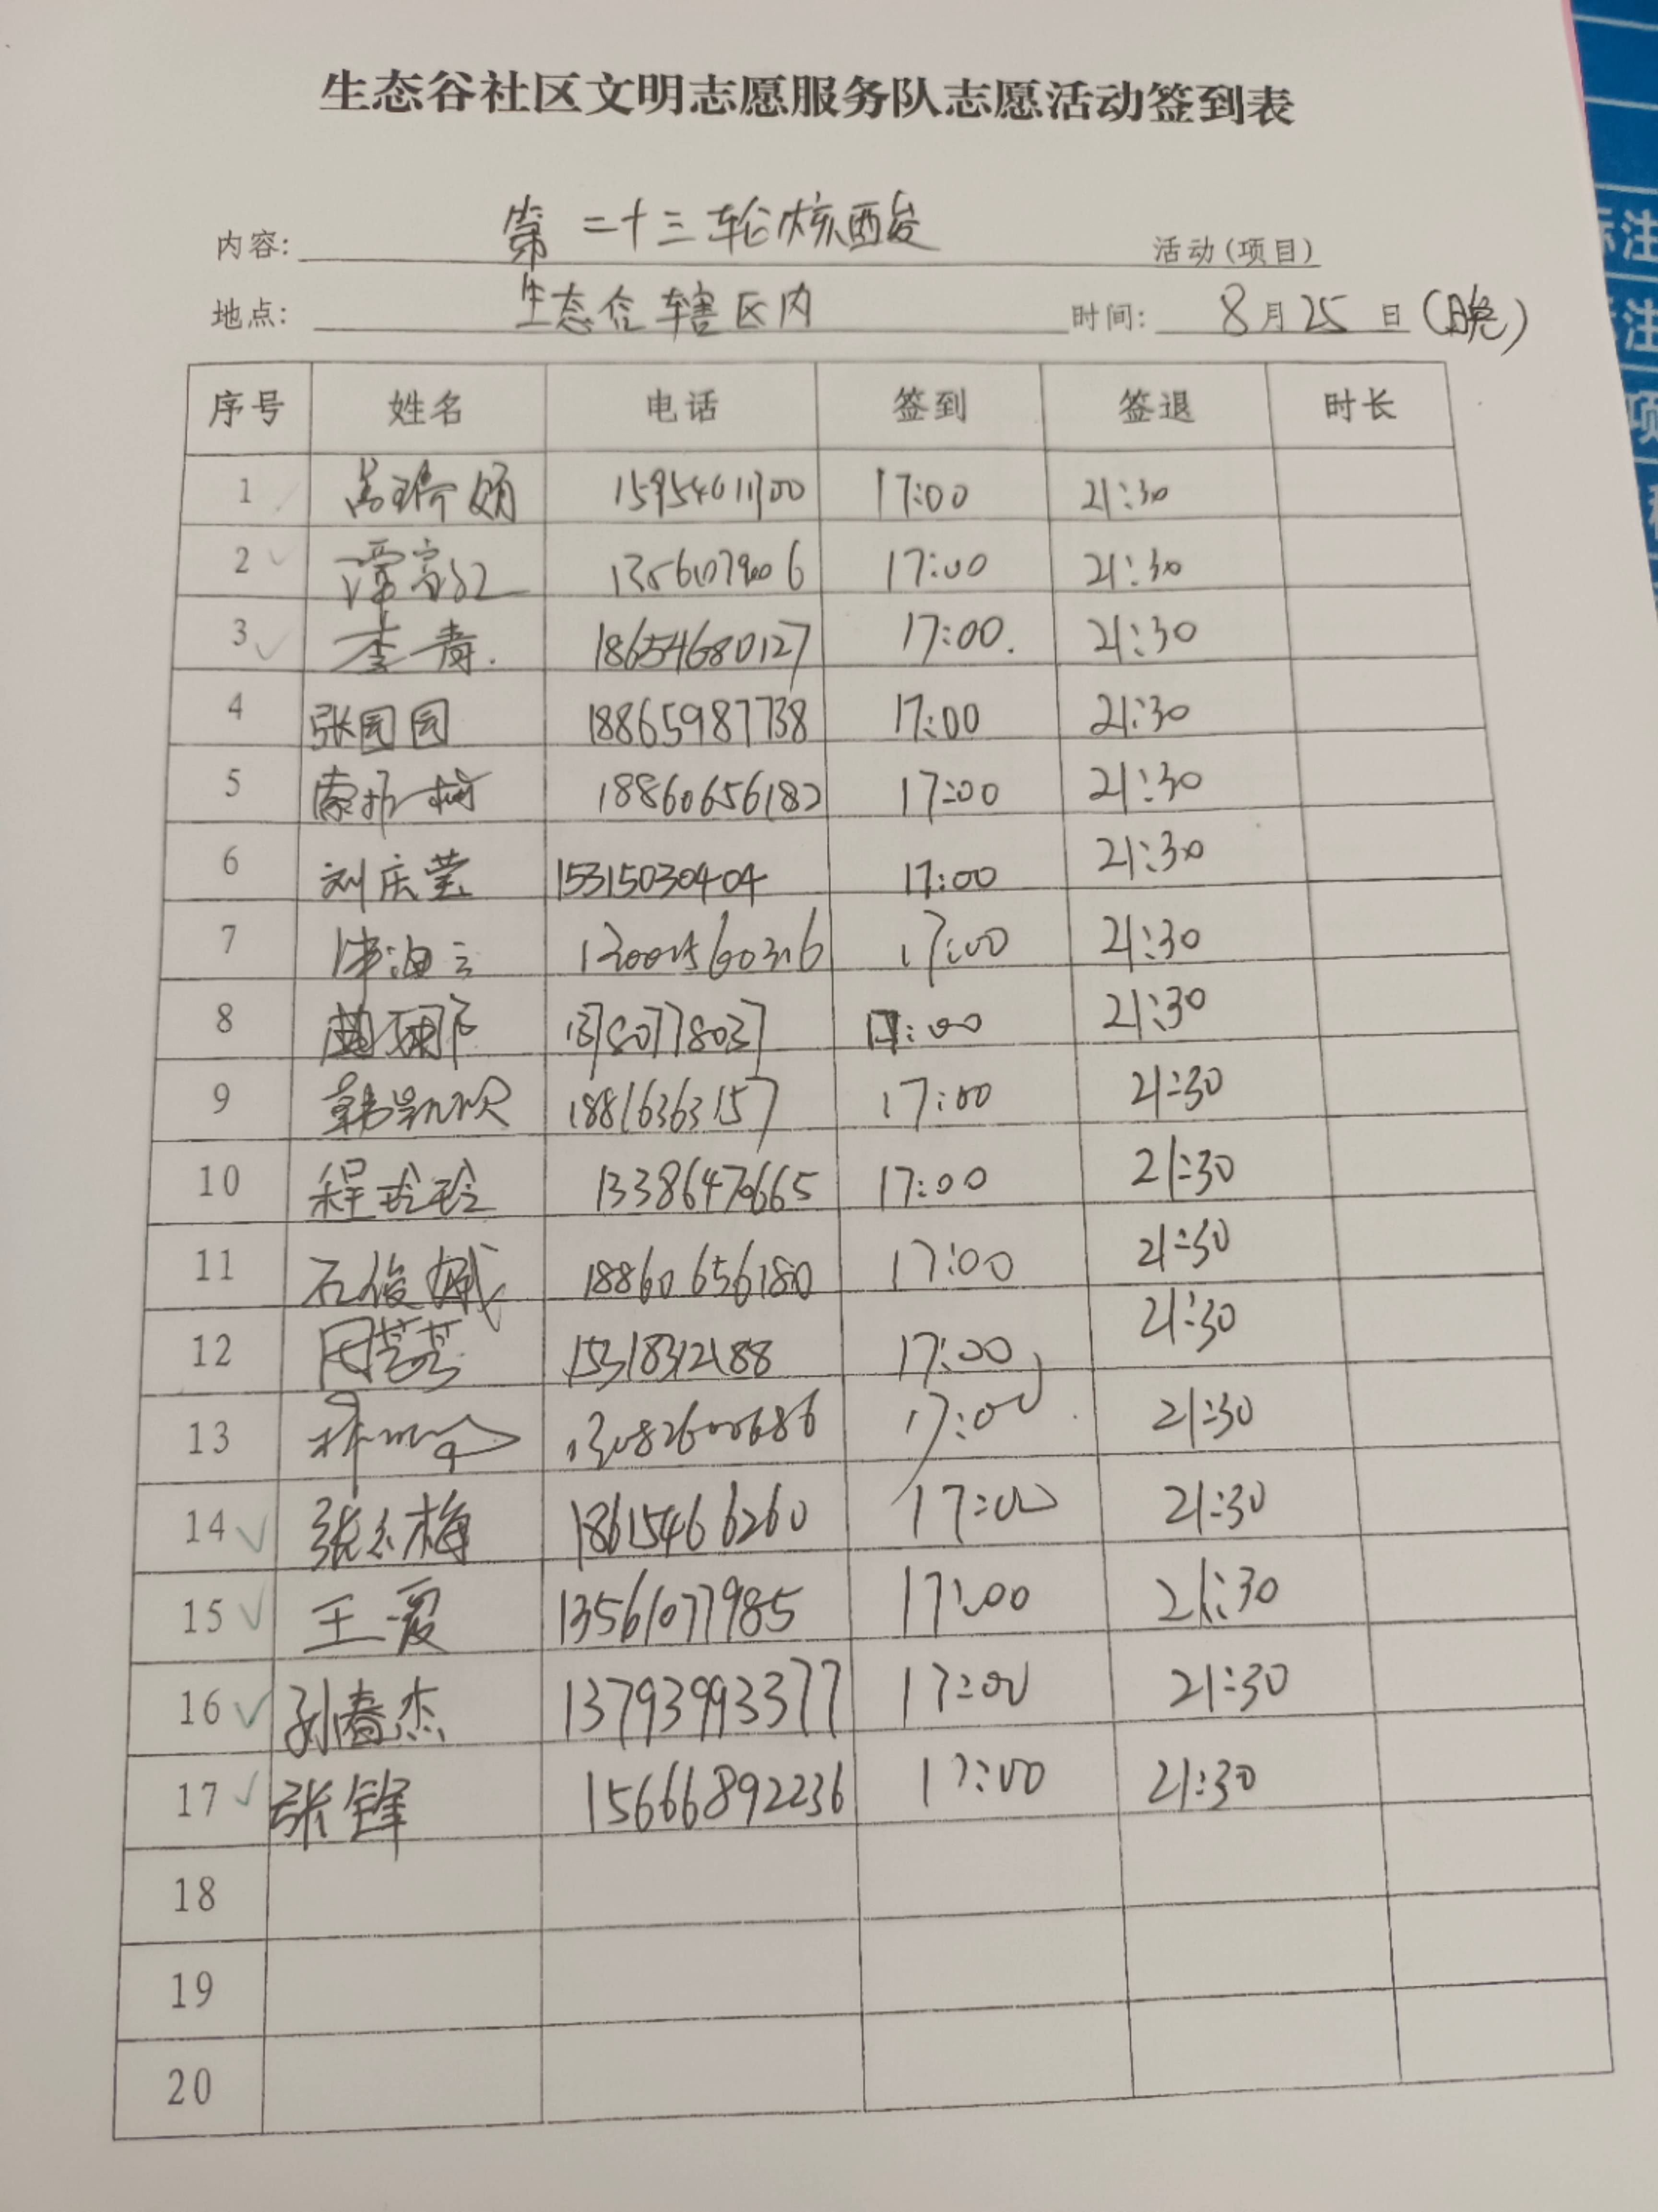 生态谷社区文明志愿服务队志愿活动签到表
内容: 第二十三轮核酸 活动(项目)
地点: 生态谷辖区内 时间: 8月25日(晚)
序号 姓名 电话 签到 签退 时长
1 17:00 21:30
2 17:00 21:30
3 李青. 18654680127 17:00. 21:30
4 张园园 18865987738 17:00 21:30
5 18860656182 17:00 21:30
6 刘庆莹 15315030404 17:00 21:30
7 17:00 21:30
8 17:00 21:30
9 18816363157 17:00 21:30
10 程玲玲 13386470665 17:00 21:30
11 石俊娥 18860656180 17:00 21:30
12 15318312188 17:00 21:30
13 17:00 21:30
14 18615466260 17:00 21:30
15 王爱 13561077985 17:00 21:30
16 孙春杰 13793993377 17:00 21:30
17 张锋 15666892236 17:00 21:30
18
19
20
标注
注
项